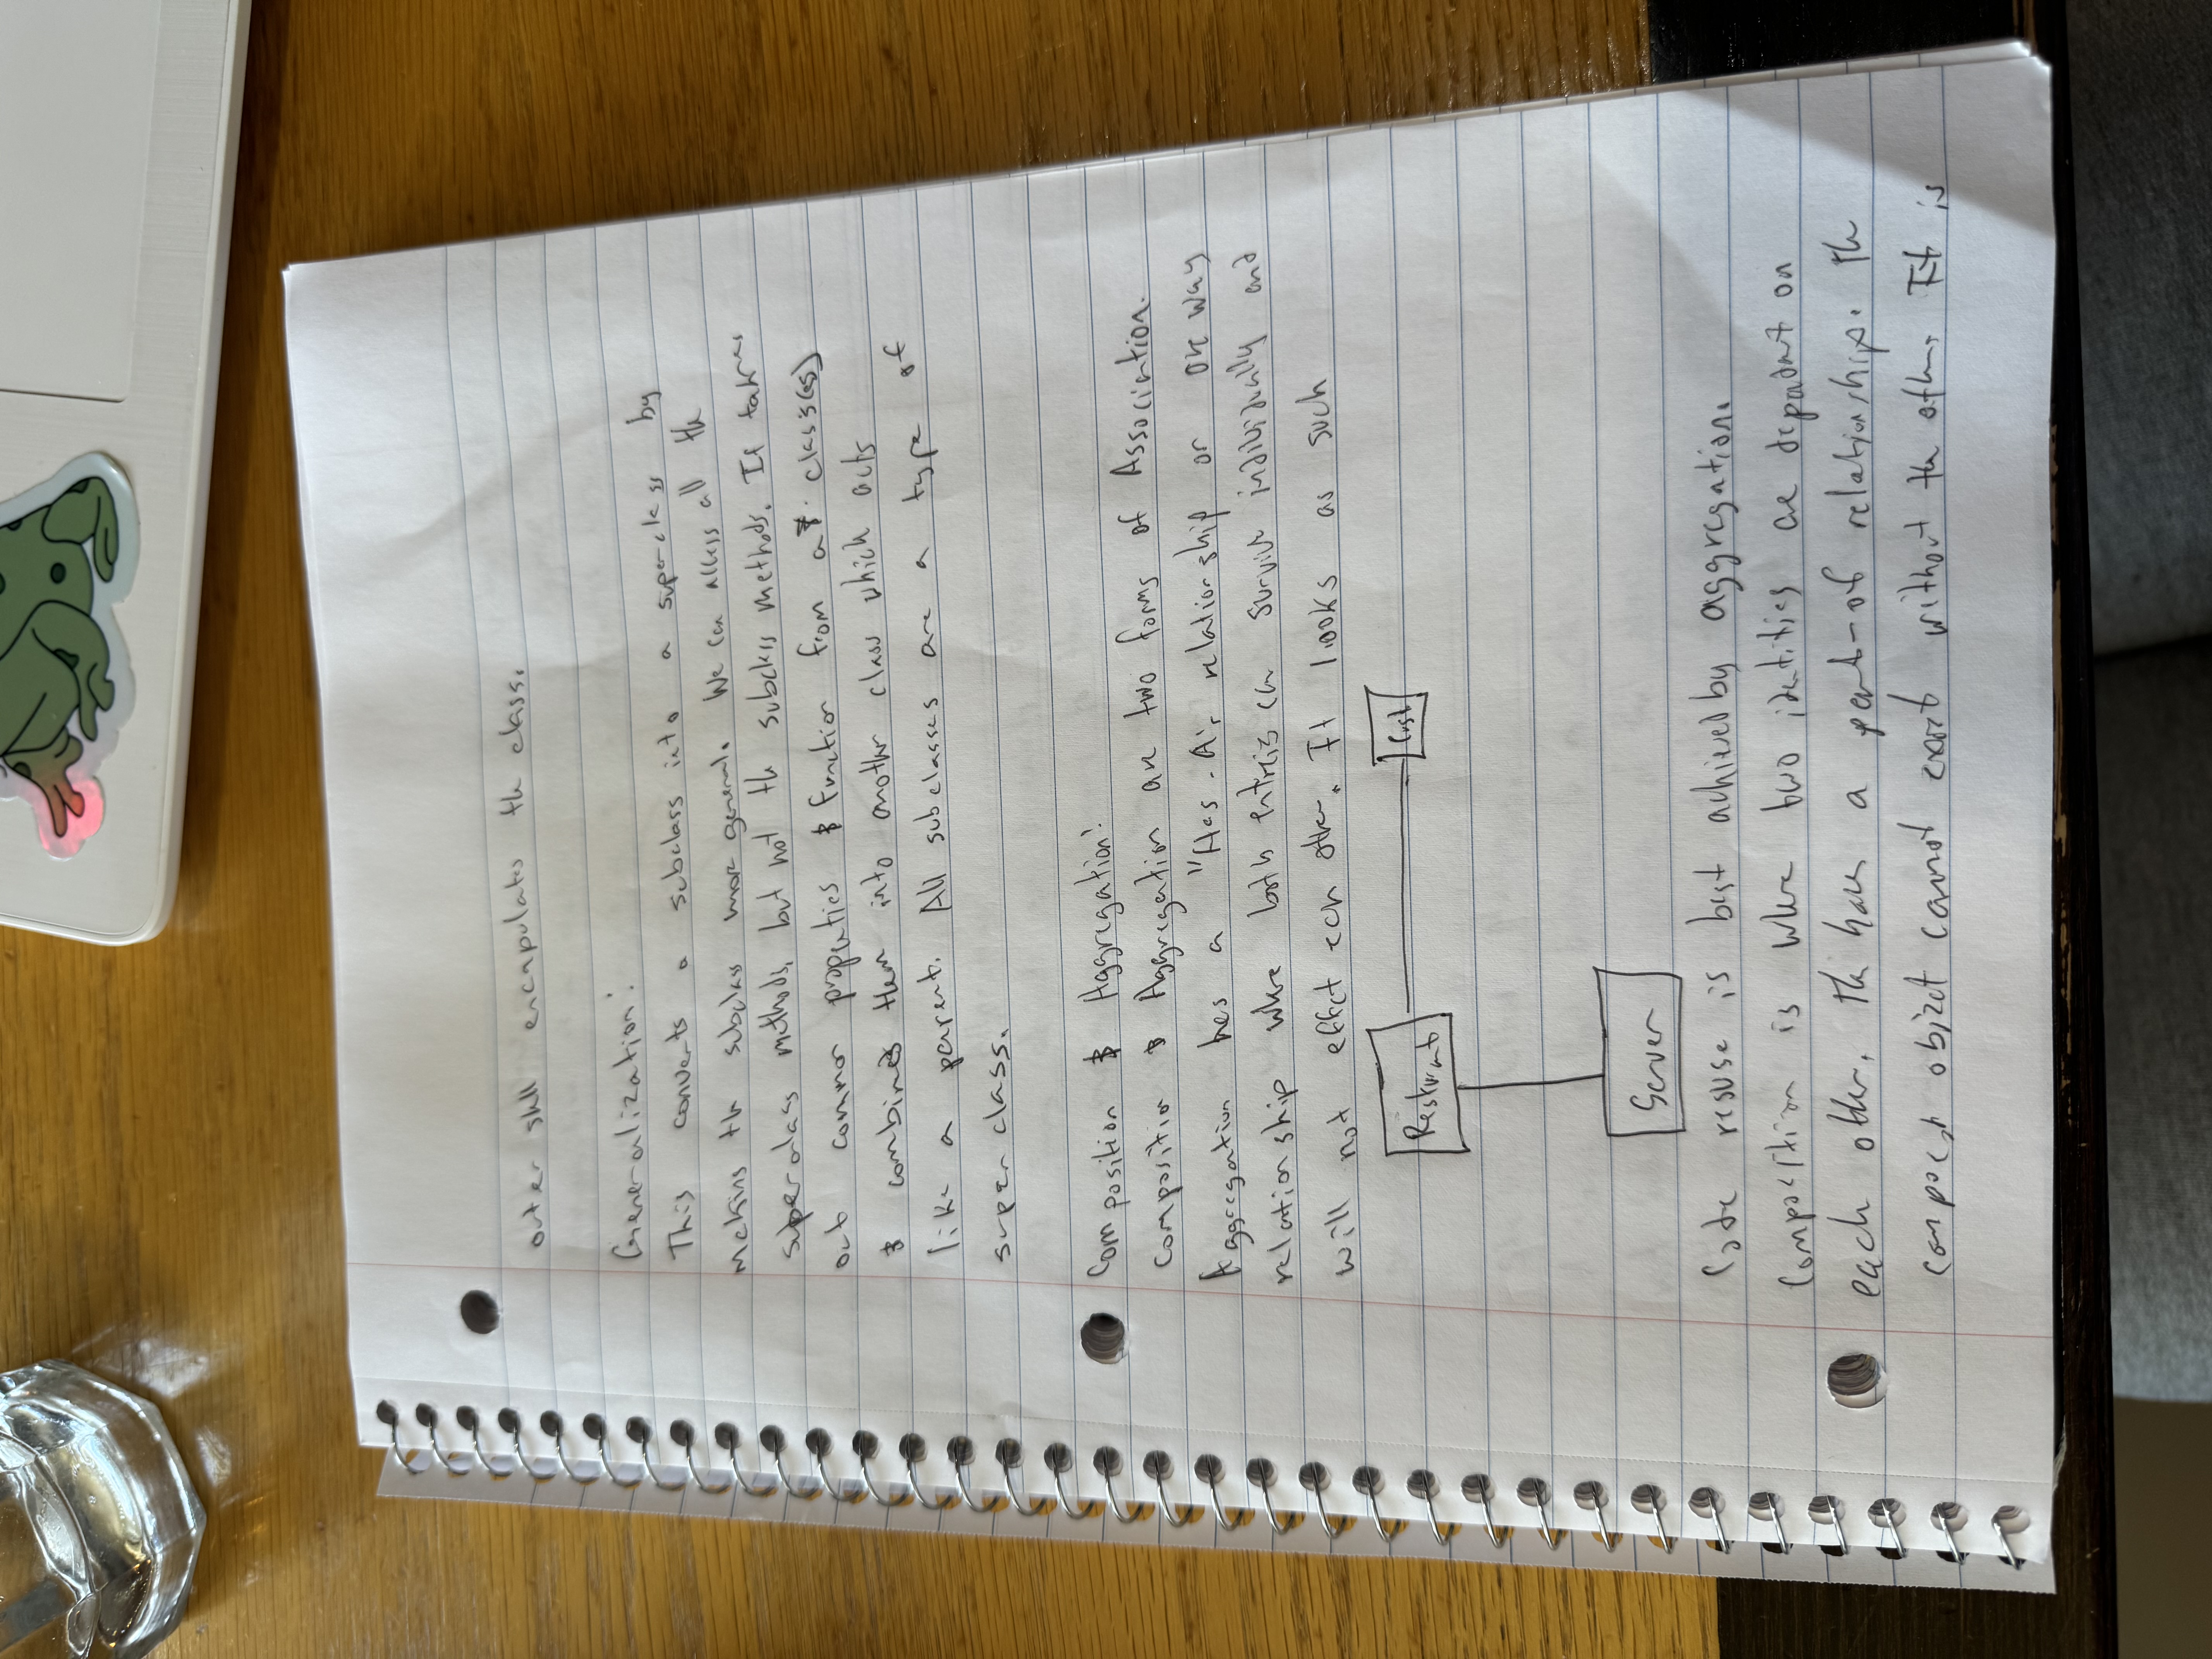 outer shll encapulates th class.
Generalization:
This converts a subclass into a superclass by
making th subclass more general. We can access all th
superclass methods, but not th subclass methods. It takes
out common properties & function from a class(es)
& combines them into another class which acts
like a parent. All subclasses are a type of
super class.
Composition & Aggregation:
Composition & Aggregation are two forms of Association.
Aggregation has a "Has-A" relationship or one way
relationship where both entreis can survive individually and
will not effect ech other. It looks as such
Resturant
Cust
Server
Code resuse is best achieved by aggregation.
Composition is where two identities are dependant on
each other. Th have a part-of relationship. Th
compost object cannot exist without th other. It is